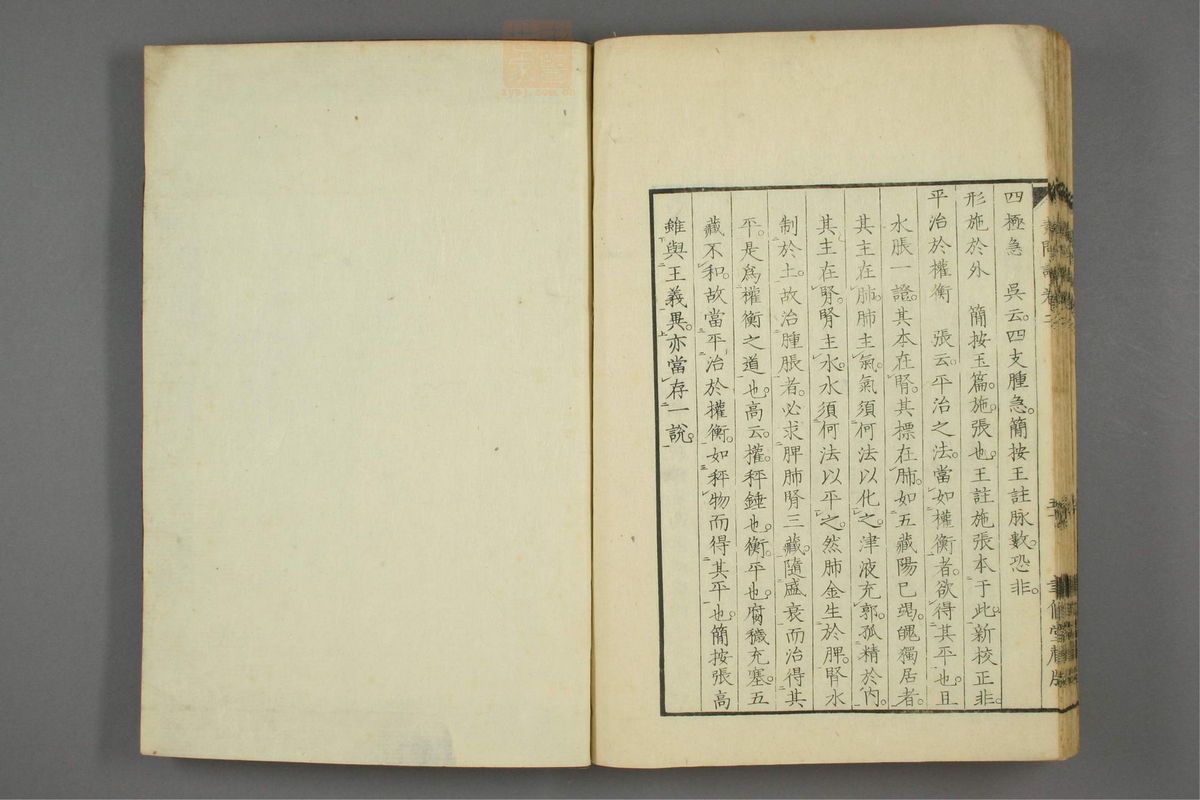 四極急　吳云。四支腫急。簡按王註脉數。恐非。
形施於外　簡按玉篇。施。張也。王註施張本于此。新校正非。
平治於權衡　張云。平治之法。當如權衡者。欲得其平也。且
水脹一證。其本在腎。其標在肺。如五藏陽已竭。魄獨居者。
其主在肺。肺主氣。氣須何法以化之。津液充郭。孤精於內。
其主在腎。腎主水。水須何法以平之。然肺金生於脾。腎水
制於土。故治腫脹者。必求脾肺腎三藏。隨盛衰而治得其
平。是爲權衡之道也。高云。權秤錘也。衡平也。腐穢充塞。五
藏不和。故當平治於權衡。如秤物而得其平也。簡按張高
雖與王義異。亦當存一說。